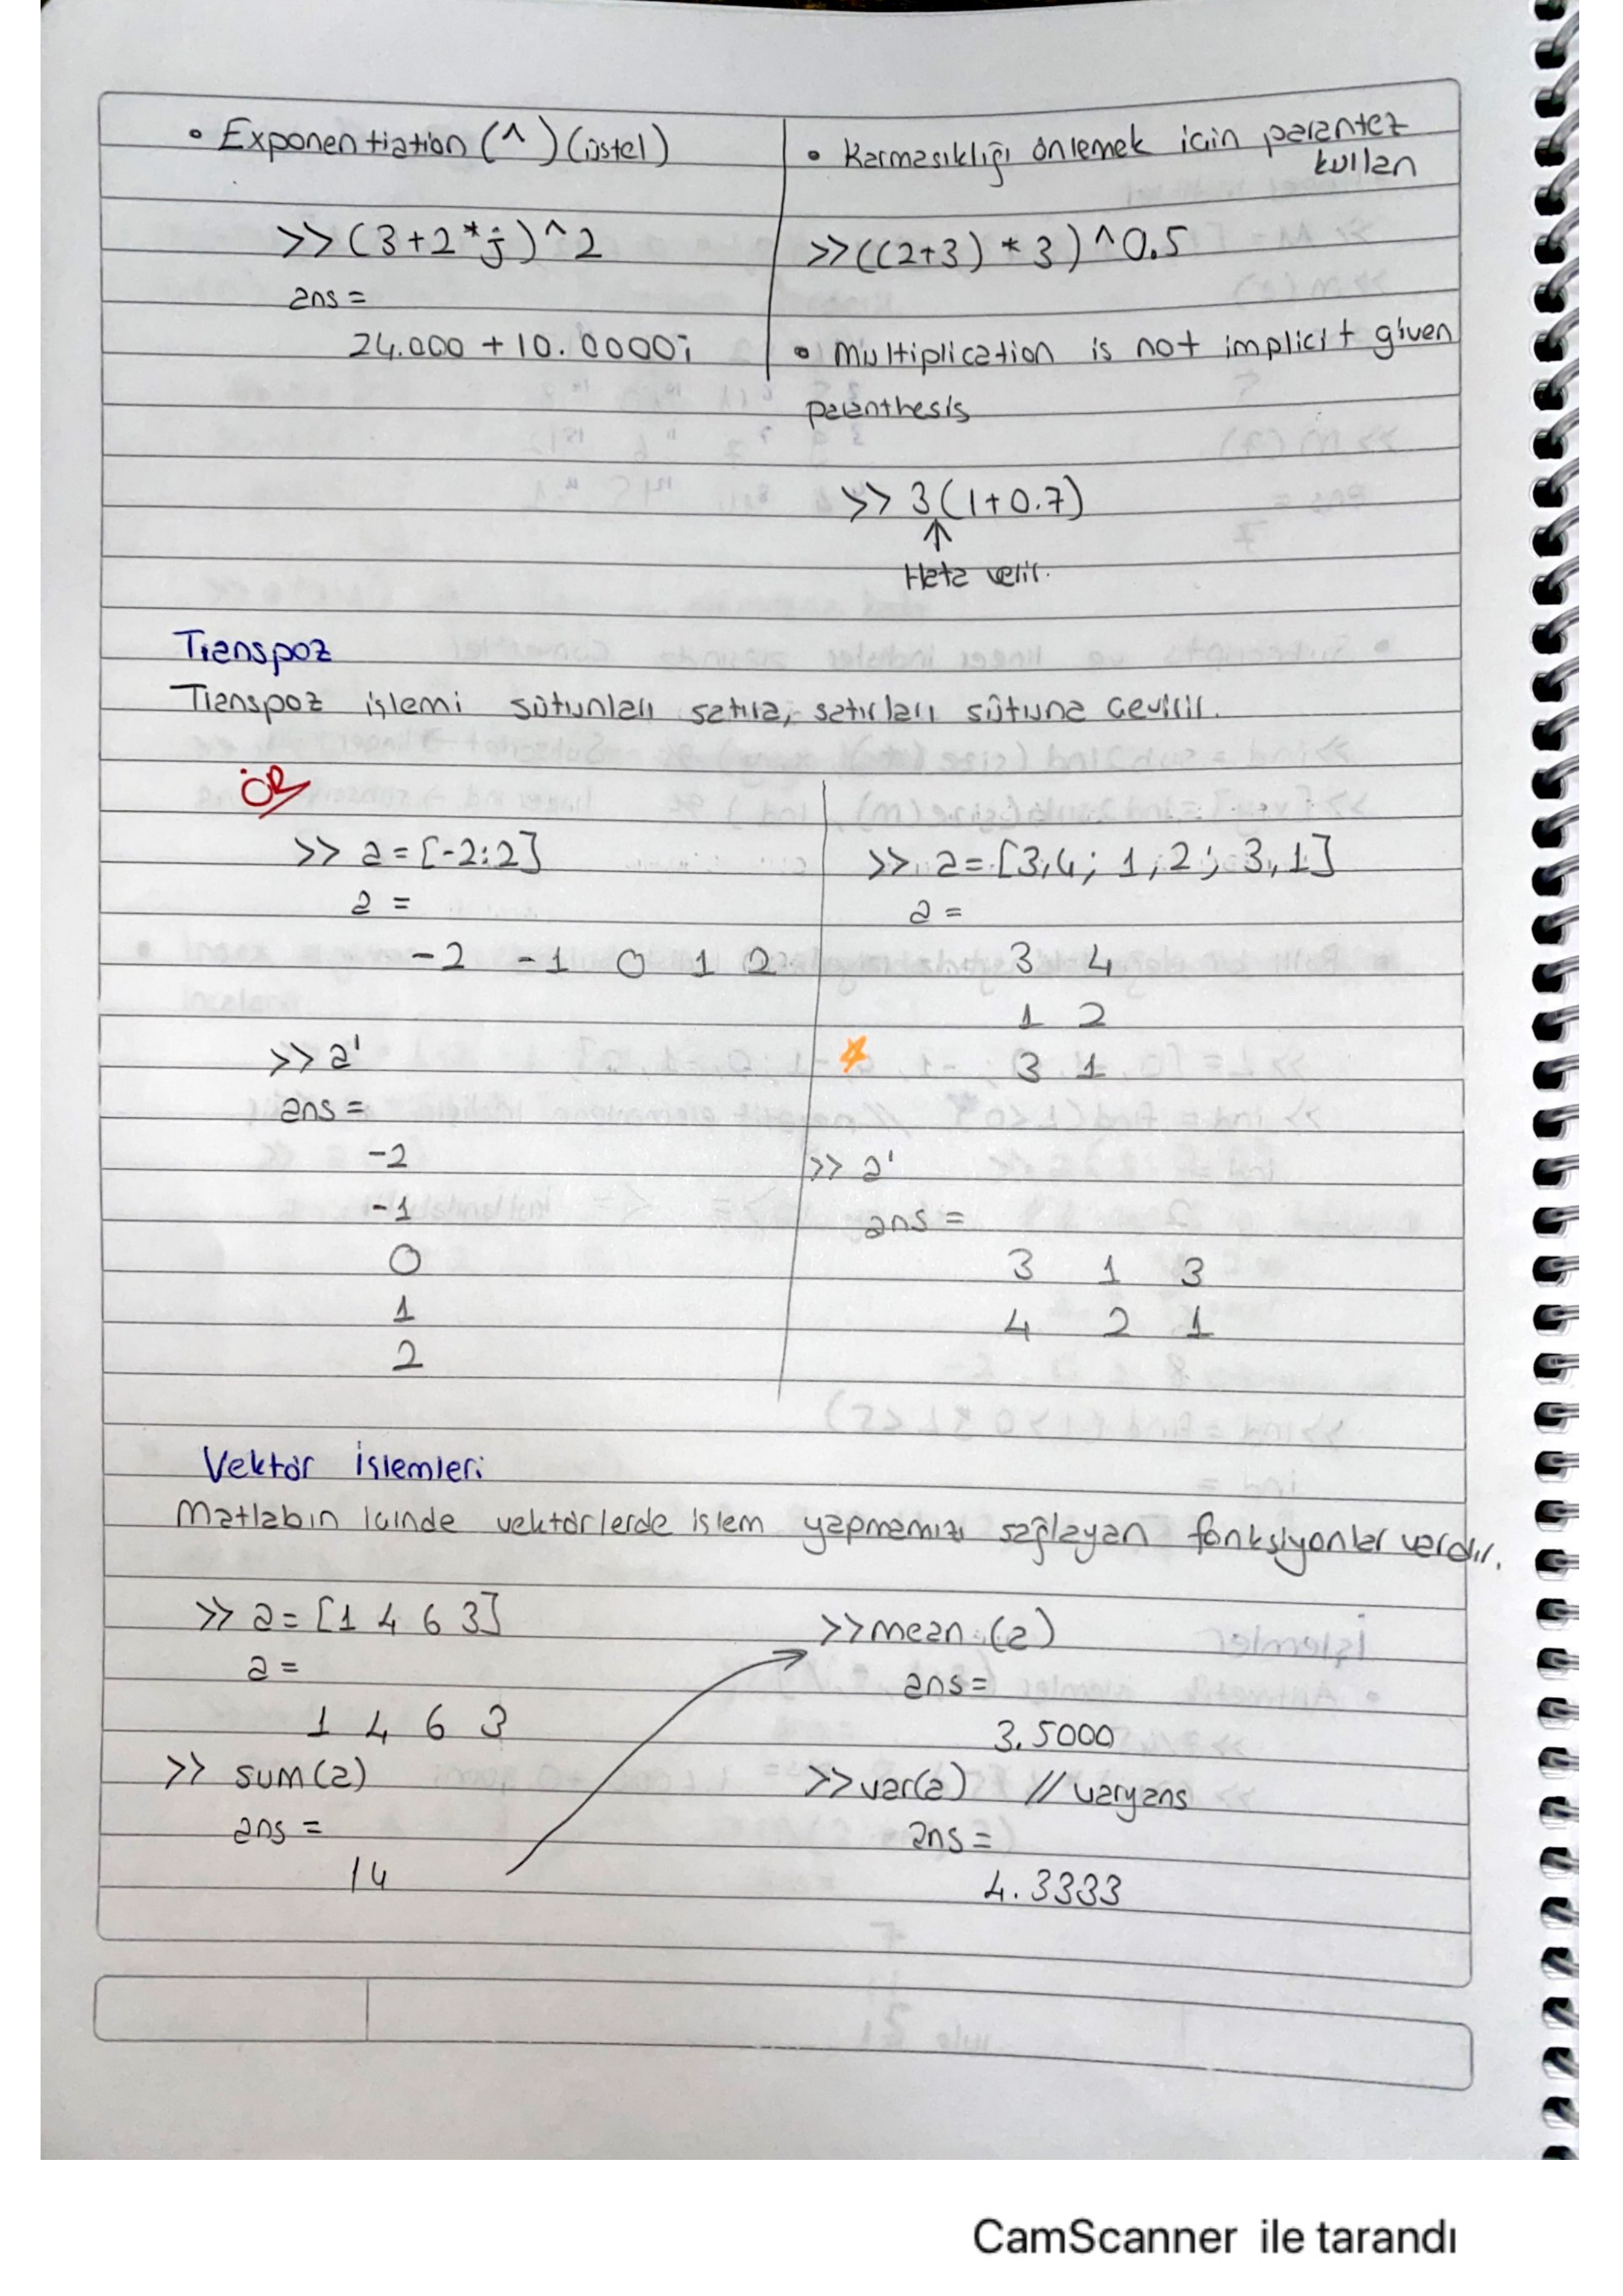 • Exponentiation (^) (üstel)
>> (3+2*j)^2
ans =
24.000 + 10.0000i
• Karmasıklığı önlemek için parantez
kullan
>> ((2+3) * 3)^0.5
• Multiplication is not implicit given
paranthesis
>> 3(1+0.7)
↑
Hata verir.
Transpoz
Transpoz işlemi sütunları satıra, satırları sütuna çevirir.
ÖR
>> a = [-2:2]
a =
-2 -1 0 1 2
>> a'
ans =
-2
-1
0
1
2
>> a = [3,4; 1,2; 3,1]
a =
3 4
1 2
3 1
>> a'
ans =
3 1 3
4 2 1
Vektör İşlemleri
Matlabın içinde vektörlerde işlem yapmamızı sağlayan fonksiyonlar vardır.
>> a = [1 4 6 3]
a =
1 4 6 3
>> sum(a)
ans =
14
>> mean (a)
ans =
3.5000
>> var(a) // varyans
ans =
4.3333
CamScanner ile tarandı